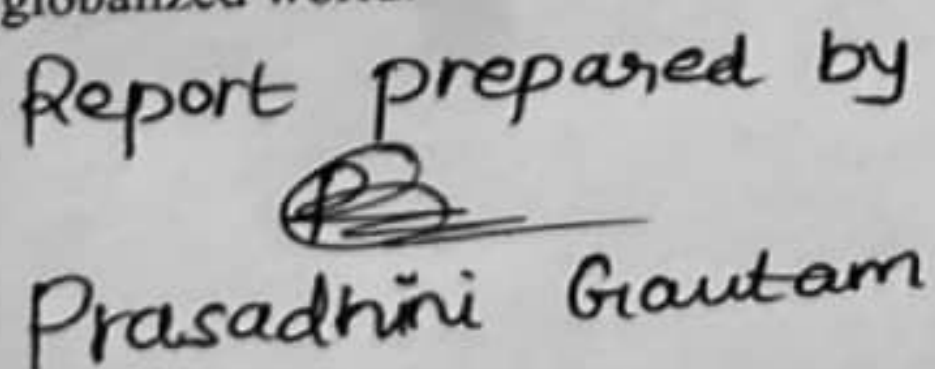 Report prepared by
Prasadhini Gautam